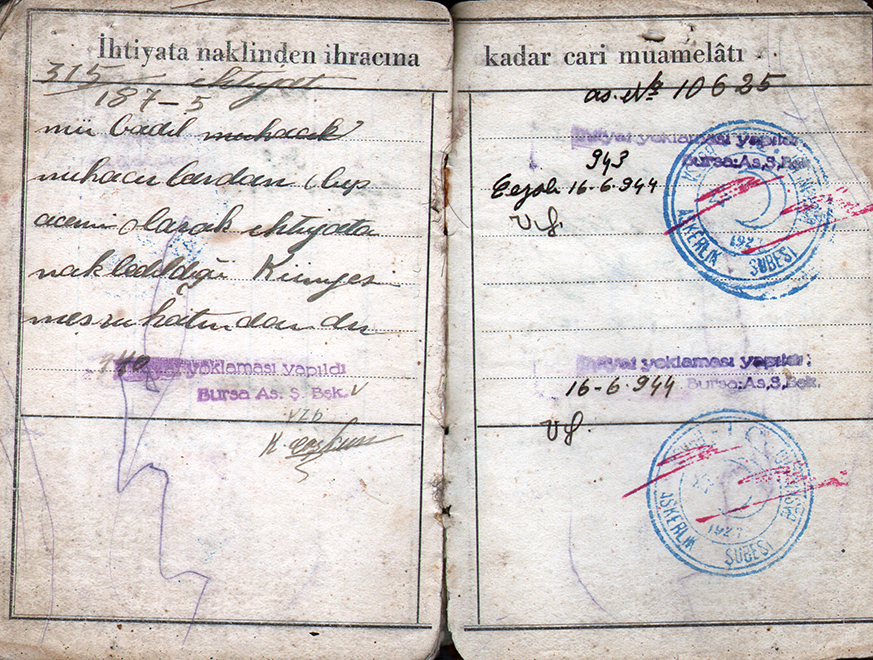 İhtiyata naklinden ihracına
315 ihtiyat
187-5
mü badil
muhacirlardan olup
acemi olarak ihtiyata
nakledildiği Künyesi
meşruhatından dır
940 yoklaması yapıldı
Bursa As. Ş. Bşk.
K.
kadar cari muamelâtı
as. No 10625
İhtiyat yoklaması yapıldı
943 Bursa:As,Ş,Bşk
16-6-944
ASKERLİK ŞUBESİ
İhtiyat yoklaması yapıldı
16-6-944 Bursa:As,Ş,Bşk.
ASKERLİK ŞUBESİ